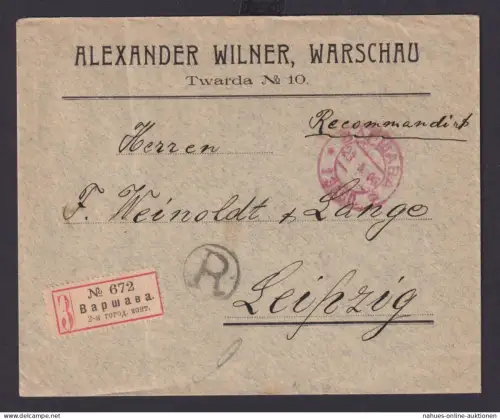 ALEXANDER WILNER, WARSCHAU
Twarda № 10.
Recommandirt
Herren
F. Weinoldt & Lange
Leipzig
R
З
№ 672
Варшава.
2-я город. конт.
https://www.nahues-online-auktionen